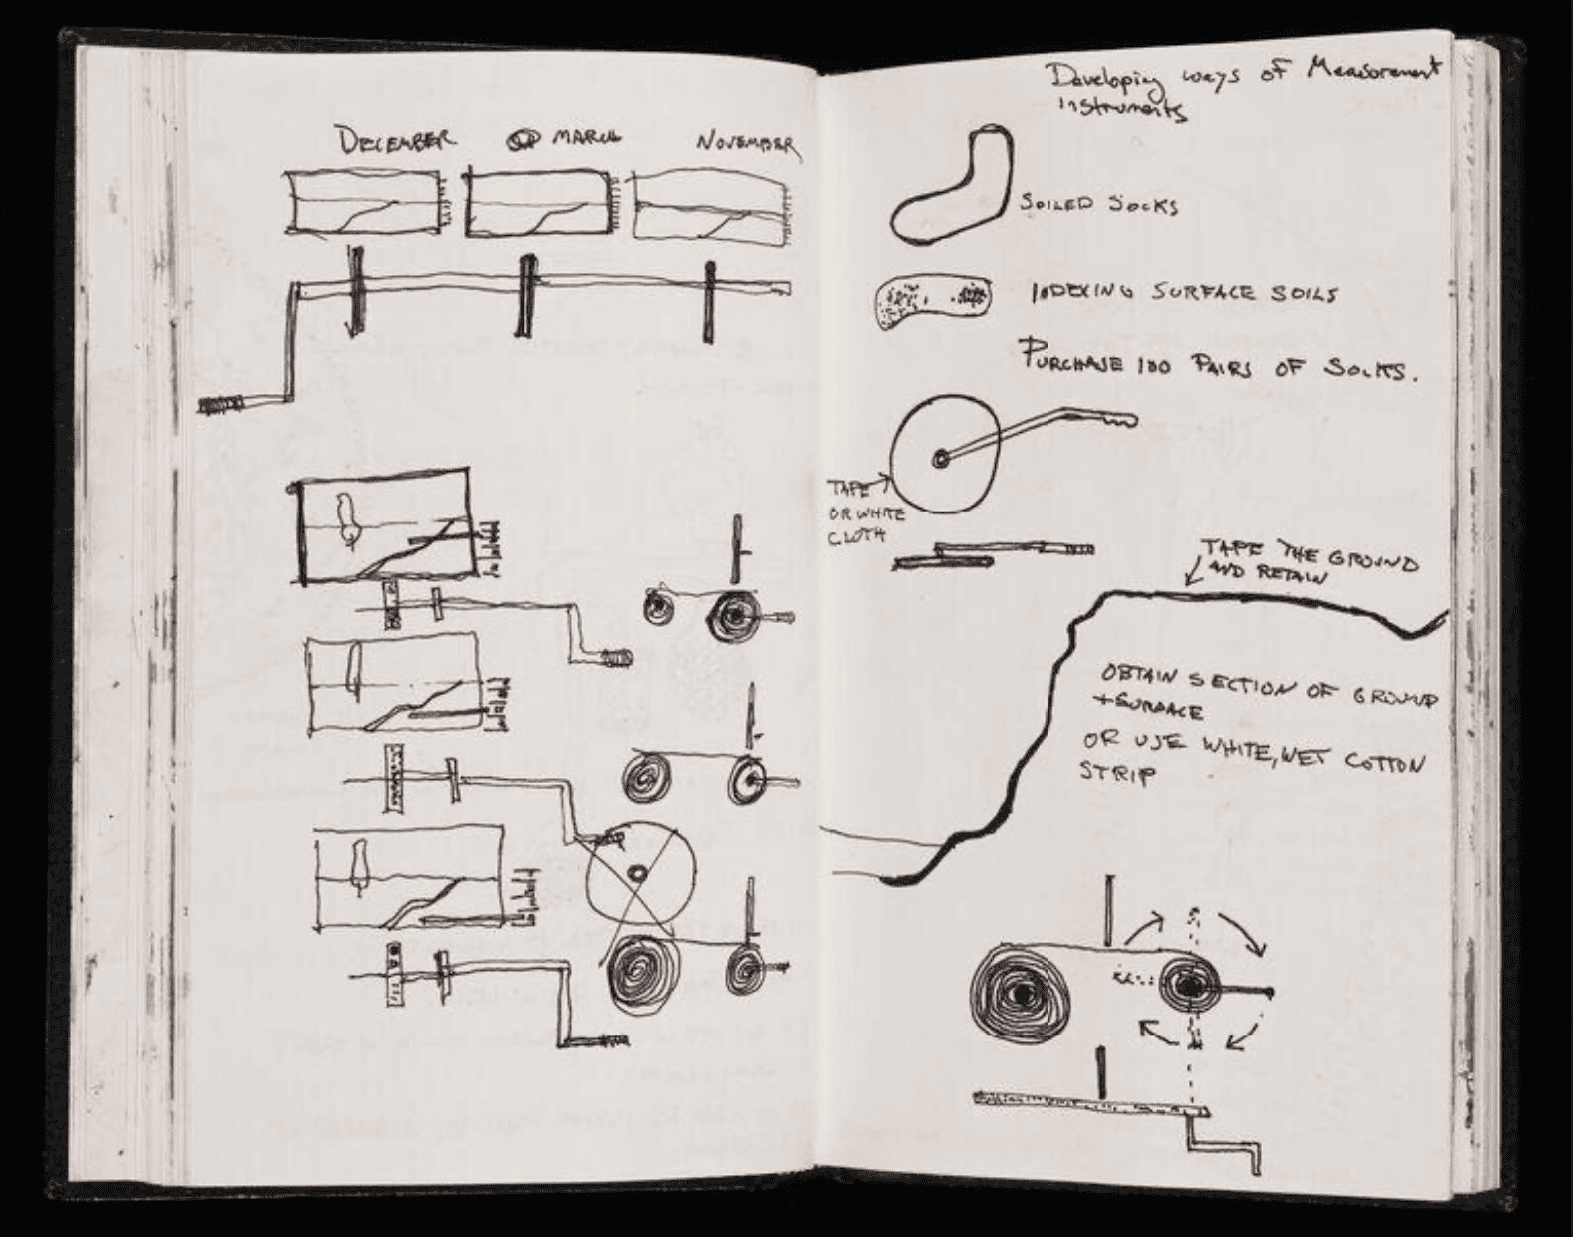 DECEMBER
MARCH
NOVEMBER
Developing ways of Measurement
instruments
SOILED SOCKS
INDEXING SURFACE SOILS
PURCHASE 100 PAIRS OF SOCKS.
TAPE
OR WHITE
CLOTH
TAPE THE GROUND
AND RETAIN
OBTAIN SECTION OF GROUND
+ SURFACE
OR USE WHITE, WET COTTON
STRIP